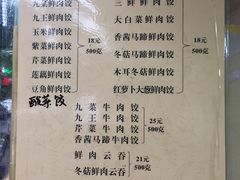 九菜鲜肉饺
九王鲜肉饺
玉米鲜肉饺
紫菜鲜肉饺
芹菜鲜肉饺
莲藕鲜肉饺
豆角鲜肉饺
18元
500克
三鲜鲜肉饺
大白菜鲜肉饺
香茜马蹄鲜肉饺
冬菇马蹄鲜肉饺
冬菇鲜肉饺
木耳冬菇鲜肉饺
红萝卜大葱鲜肉饺
18元
500克
酸荞饺
九菜牛肉饺
九王牛肉饺
芹菜牛肉饺
香茜马蹄牛肉饺
25元
500克
鲜肉云吞
冬菇鲜肉云吞
21元
500克